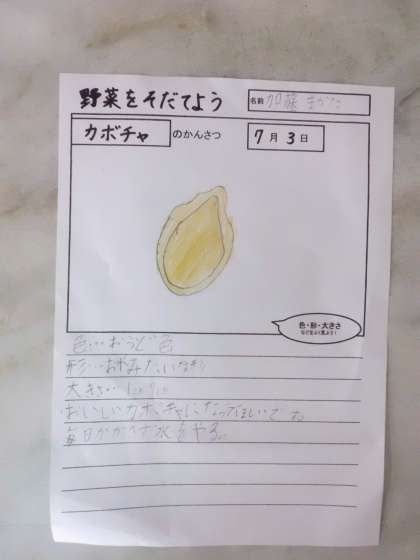 野菜をそだてよう
名前 加藤
カボチャ のかんさつ
7月3日
色・形・大きさ
などをよく見よう!
色…おうど色
形…みたいな形
大きさ…
おいしいカボチャになってほしいです。
毎日かかさず水をやる。